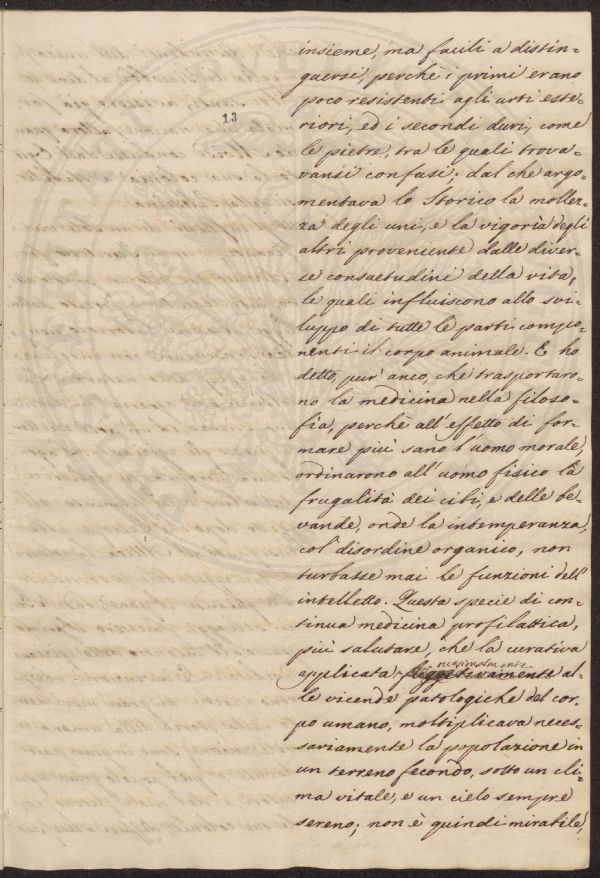 13
insieme, ma facili a distin=
guersi, perchè i primi erano
poco resistenti agli urti este=
riori, ed i secondi duri, come
le pietre, tra le quali trova=
vansi confusi; dal che argo=
mentava lo Storico la mollez=
za degli uni, e la vigorìa degli
altri proveniente dalle diver=
se consuetudini della vita,
le quali influiscono allo svi=
luppo di tutte le parti compo=
nenti il corpo animale. E ho
detto, pur' anco, che trasportaro=
no la medicina nella filoso=
fia, perchè all'effetto di for=
mare più sano l'uomo morale,
ordinarono all'uomo fisico la
frugalità dei cibi, e delle be=
vande, onde la intemperanza,
col disordine organico, non
turbasse mai le funzioni dell'
intelletto. Questa specie di con=
tinua medicina profilattica,
più salutare, che la curativa
applicata al=
le vicende patologiche del cor=
po umano, moltiplicava neces=
sariamente la popolazione in
un terreno fecondo, sotto un cli=
ma vitale, e un cielo sempre
sereno; non è quindi mirabile,